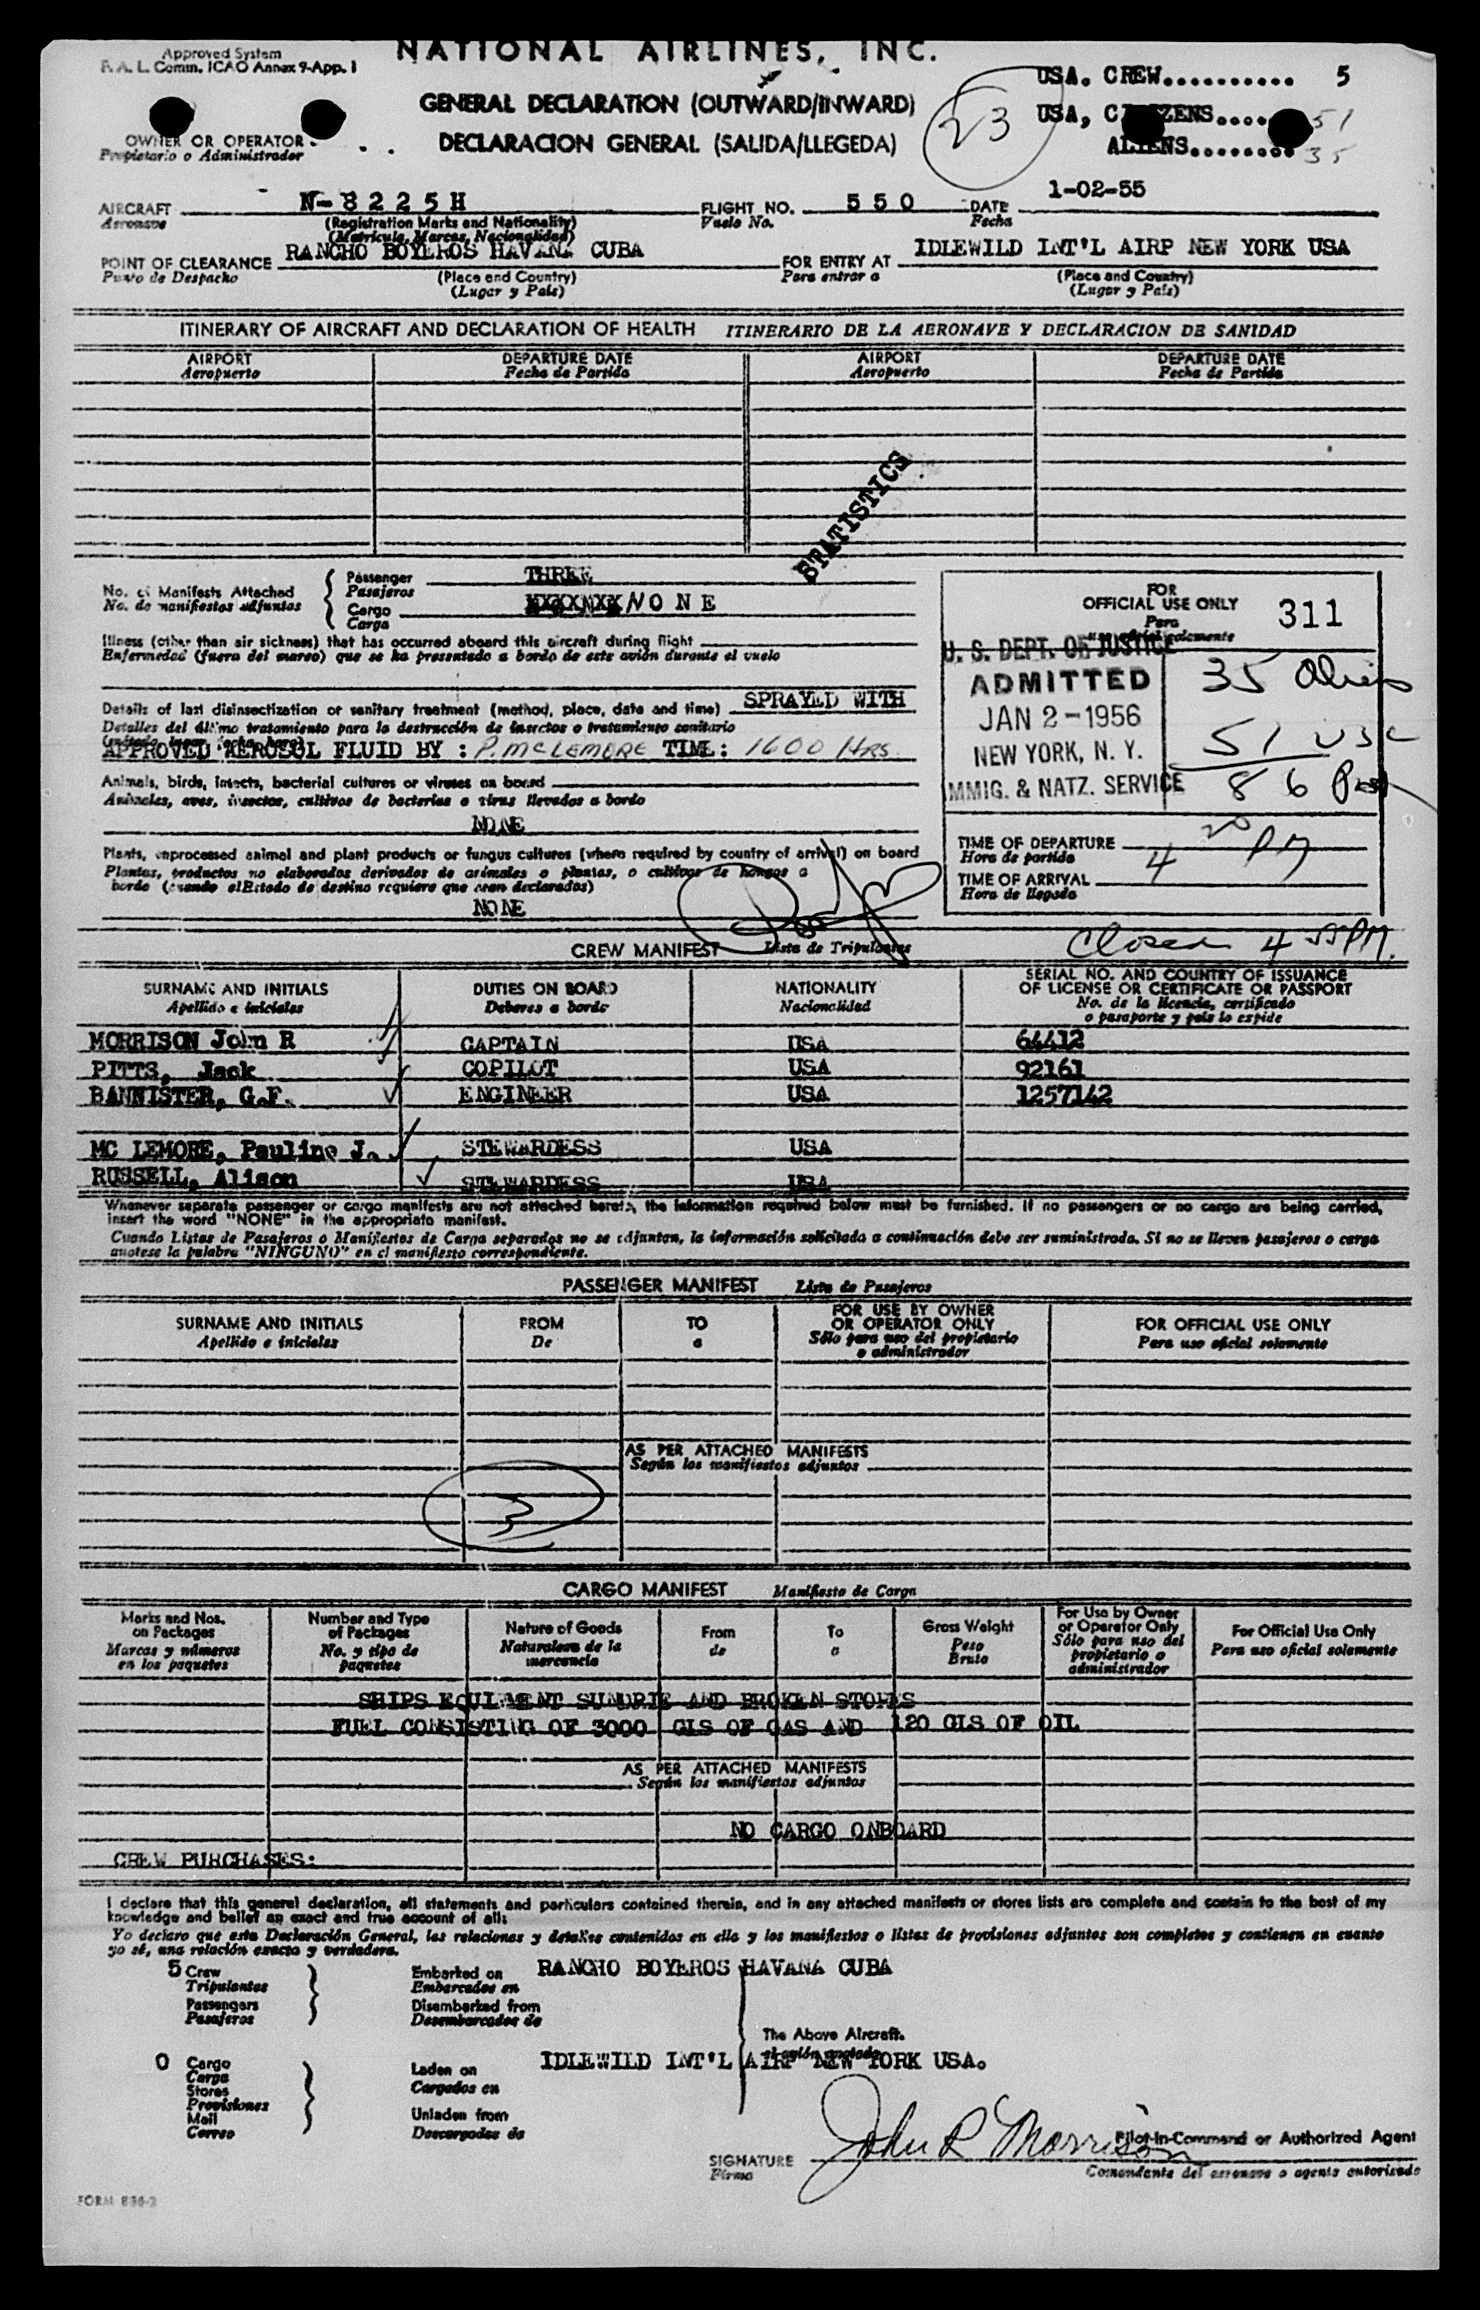 Approved System
F. A. L. Comm. ICAO Annex 9-App. 1
NATIONAL AIRLINES, INC.
GENERAL DECLARATION (OUTWARD/INWARD)
DECLARACION GENERAL (SALIDA/LLEGEDA)
23
USA. CREW.......... 5
USA, CITIZENS..... 51
ALIENS........ 35
OWNER OR OPERATOR
Propietario o Administrador
AIRCRAFT N-8225H FLIGHT NO. 550 DATE 1-02-55
Aeronave (Registration Marks and Nationality) Vuelo No. Fecha
(Matricula, Marcas, Nacionalidad)
POINT OF CLEARANCE RANCHO BOYEROS HAVANA CUBA FOR ENTRY AT IDLEWILD INT'L AIRP NEW YORK USA
Punto de Despacho (Place and Country) Para entrar a (Place and Country)
(Lugar y País) (Lugar y País)
ITINERARY OF AIRCRAFT AND DECLARATION OF HEALTH ITINERARIO DE LA AERONAVE Y DECLARACION DE SANIDAD
AIRPORT DEPARTURE DATE AIRPORT DEPARTURE DATE
Aeropuerto Fecha de Partida Aeropuerto Fecha de Partida
STATISTICS
No. of Manifests Attached Passenger THREE
No. de manifiestos adjuntos Pasajeros
Cargo XXXXXXX NONE
Carga
Illness (other than air sickness) that has occurred aboard this aircraft during flight
Enfermedad (fuera del mareo) que se ha presentado a bordo de este avión durante el vuelo
Details of last disinsectization or sanitary treatment (method, place, date and time) SPRAYED WITH
Detalles del último tratamiento para la destrucción de insectos o tratamiento sanitario
APPROVED AEROSOL FLUID BY : P. MCLEMORE TIME: 1600 HRS.
Animals, birds, insects, bacterial cultures or viruses on board
Animales, aves, insectos, cultivos de bacterias o virus llevados a bordo
NONE
Plants, unprocessed animal and plant products or fungus cultures (where required by country of arrival) on board
Plantas, productos no elaborados derivados de animales o plantas, o cultivos de hongos a
bordo (cuando el Estado de destino requiere que sean declarados)
NONE
FOR
OFFICIAL USE ONLY 311
Para
uso oficial solamente
U. S. DEPT. OF JUSTICE
ADMITTED
JAN 2-1956
NEW YORK, N. Y.
IMMIG. & NATZ. SERVICE
35 Aliens
51 USC
86 Pass
TIME OF DEPARTURE
Hora de partida
4 20 PM
TIME OF ARRIVAL
Hora de llegada
Closed 4 55 PM.
CREW MANIFEST Lista de Tripulantes
SURNAME AND INITIALS DUTIES ON BOARD NATIONALITY SERIAL NO. AND COUNTRY OF ISSUANCE
OF LICENSE OR CERTIFICATE OR PASSPORT
Apellido e iniciales Deberes a bordo Nacionalidad No. de la licencia, certificado
o pasaporte y país lo expide
MORRISON John R CAPTAIN USA 64412
PITTS, Jack COPILOT USA 92161
BANNISTER, G.F. ENGINEER USA 1257142
MC LEMORE, Pauline J. STEWARDESS USA
RUSSELL, Alison STEWARDESS USA
Whenever separate passenger or cargo manifests are not attached hereto, the information required below must be furnished. If no passengers or no cargo are being carried,
insert the word "NONE" in the appropriate manifest.
Cuando Listas de Pasajeros o Manifiestos de Carga separados no se adjunten, la información solicitada a continuación debe ser suministrada. Si no se lleven pasajeros o carga
anotese la palabra "NINGUNO" en el manifiesto correspondiente.
PASSENGER MANIFEST Lista de Pasajeros
SURNAME AND INITIALS FROM TO FOR USE BY OWNER FOR OFFICIAL USE ONLY
OR OPERATOR ONLY
Apellido e iniciales De a Sólo para uso del propietario Para uso oficial solamente
o administrador
AS PER ATTACHED MANIFESTS
Según los manifiestos adjuntos
3
CARGO MANIFEST Manifiesto de Carga
Marks and Nos. Number and Type Nature of Goods From To Gross Weight For Use by Owner For Official Use Only
on Packages of Packages Naturaleza de la de a Peso or Operator Only Para uso oficial solamente
Marcas y números No. y tipo de mercancia Bruto Sólo para uso del
en los paquetes paquetes propietario o
administrador
SHIPS EQUIPMENT SUNDRIE AND BROKEN STORES
FUEL CONSISTING OF 3000 GLS OF GAS AND 120 GLS OF OIL
AS PER ATTACHED MANIFESTS
Según los manifiestos adjuntos
NO CARGO ONBOARD
CREW PURCHASES:
I declare that this general declaration, all statements and particulars contained therein, and in any attached manifests or stores lists are complete and contain to the best of my
knowledge and belief an exact and true account of all:
Yo declaro que esta Declaración General, las relaciones y detalles contenidos en ella y los manifiestos o listas de provisiones adjuntos son completos y contienen en cuanto
yo sé, una relación exacta y verdadera.
5 Crew Embarked on RANCHO BOYEROS HAVANA CUBA
Tripulantes Embarcados en
Passengers Disembarked from
Pasajeros Desembarcados de
The Above Aircraft.
el avión anotado
0 Cargo Laden on IDLEWILD INT'L AIRP NEW YORK USA.
Carga Cargados en
Stores
Provisiones
Mail Unladen from
Correo Descargados de
SIGNATURE John R Morrison Pilot-in-Command or Authorized Agent
Firma Comandante del aeronave o agente autorizado
FORM 836-2